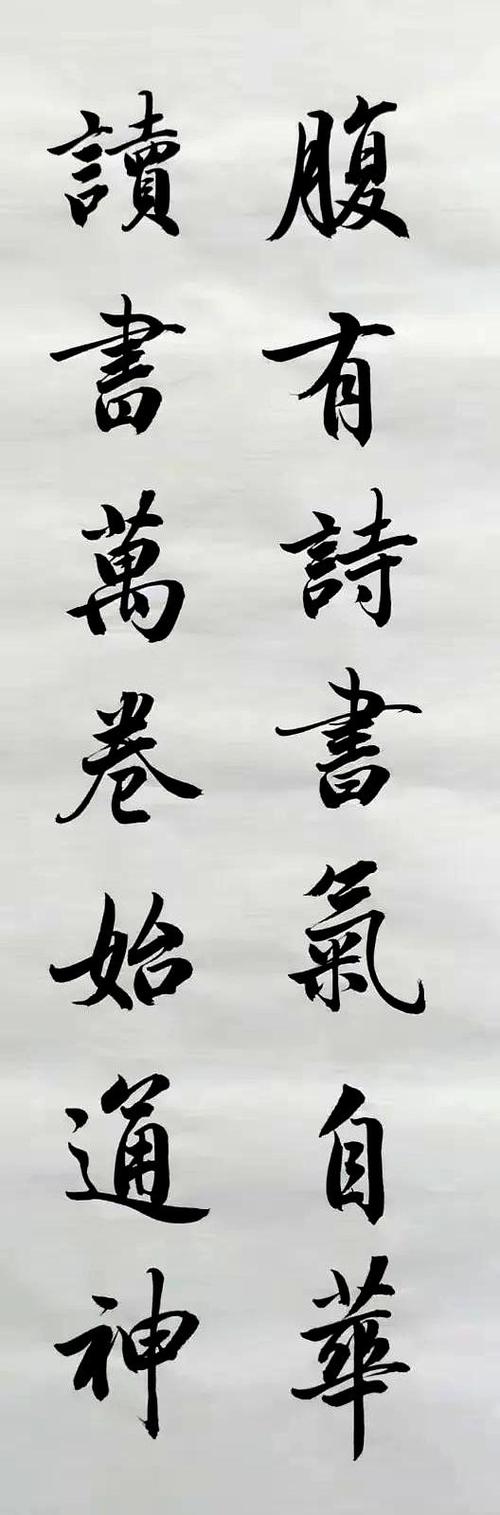 腹有詩書氣自華
讀書萬卷始通神